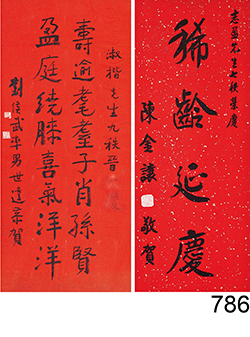 淑楷先生九秩晉
壽逾耄耋子肖孫賢
盈庭繞膝喜氣洋洋
劉 武率男世達恭賀
先生七秩 慶
稀齡延慶
陳金讓 敬賀
786